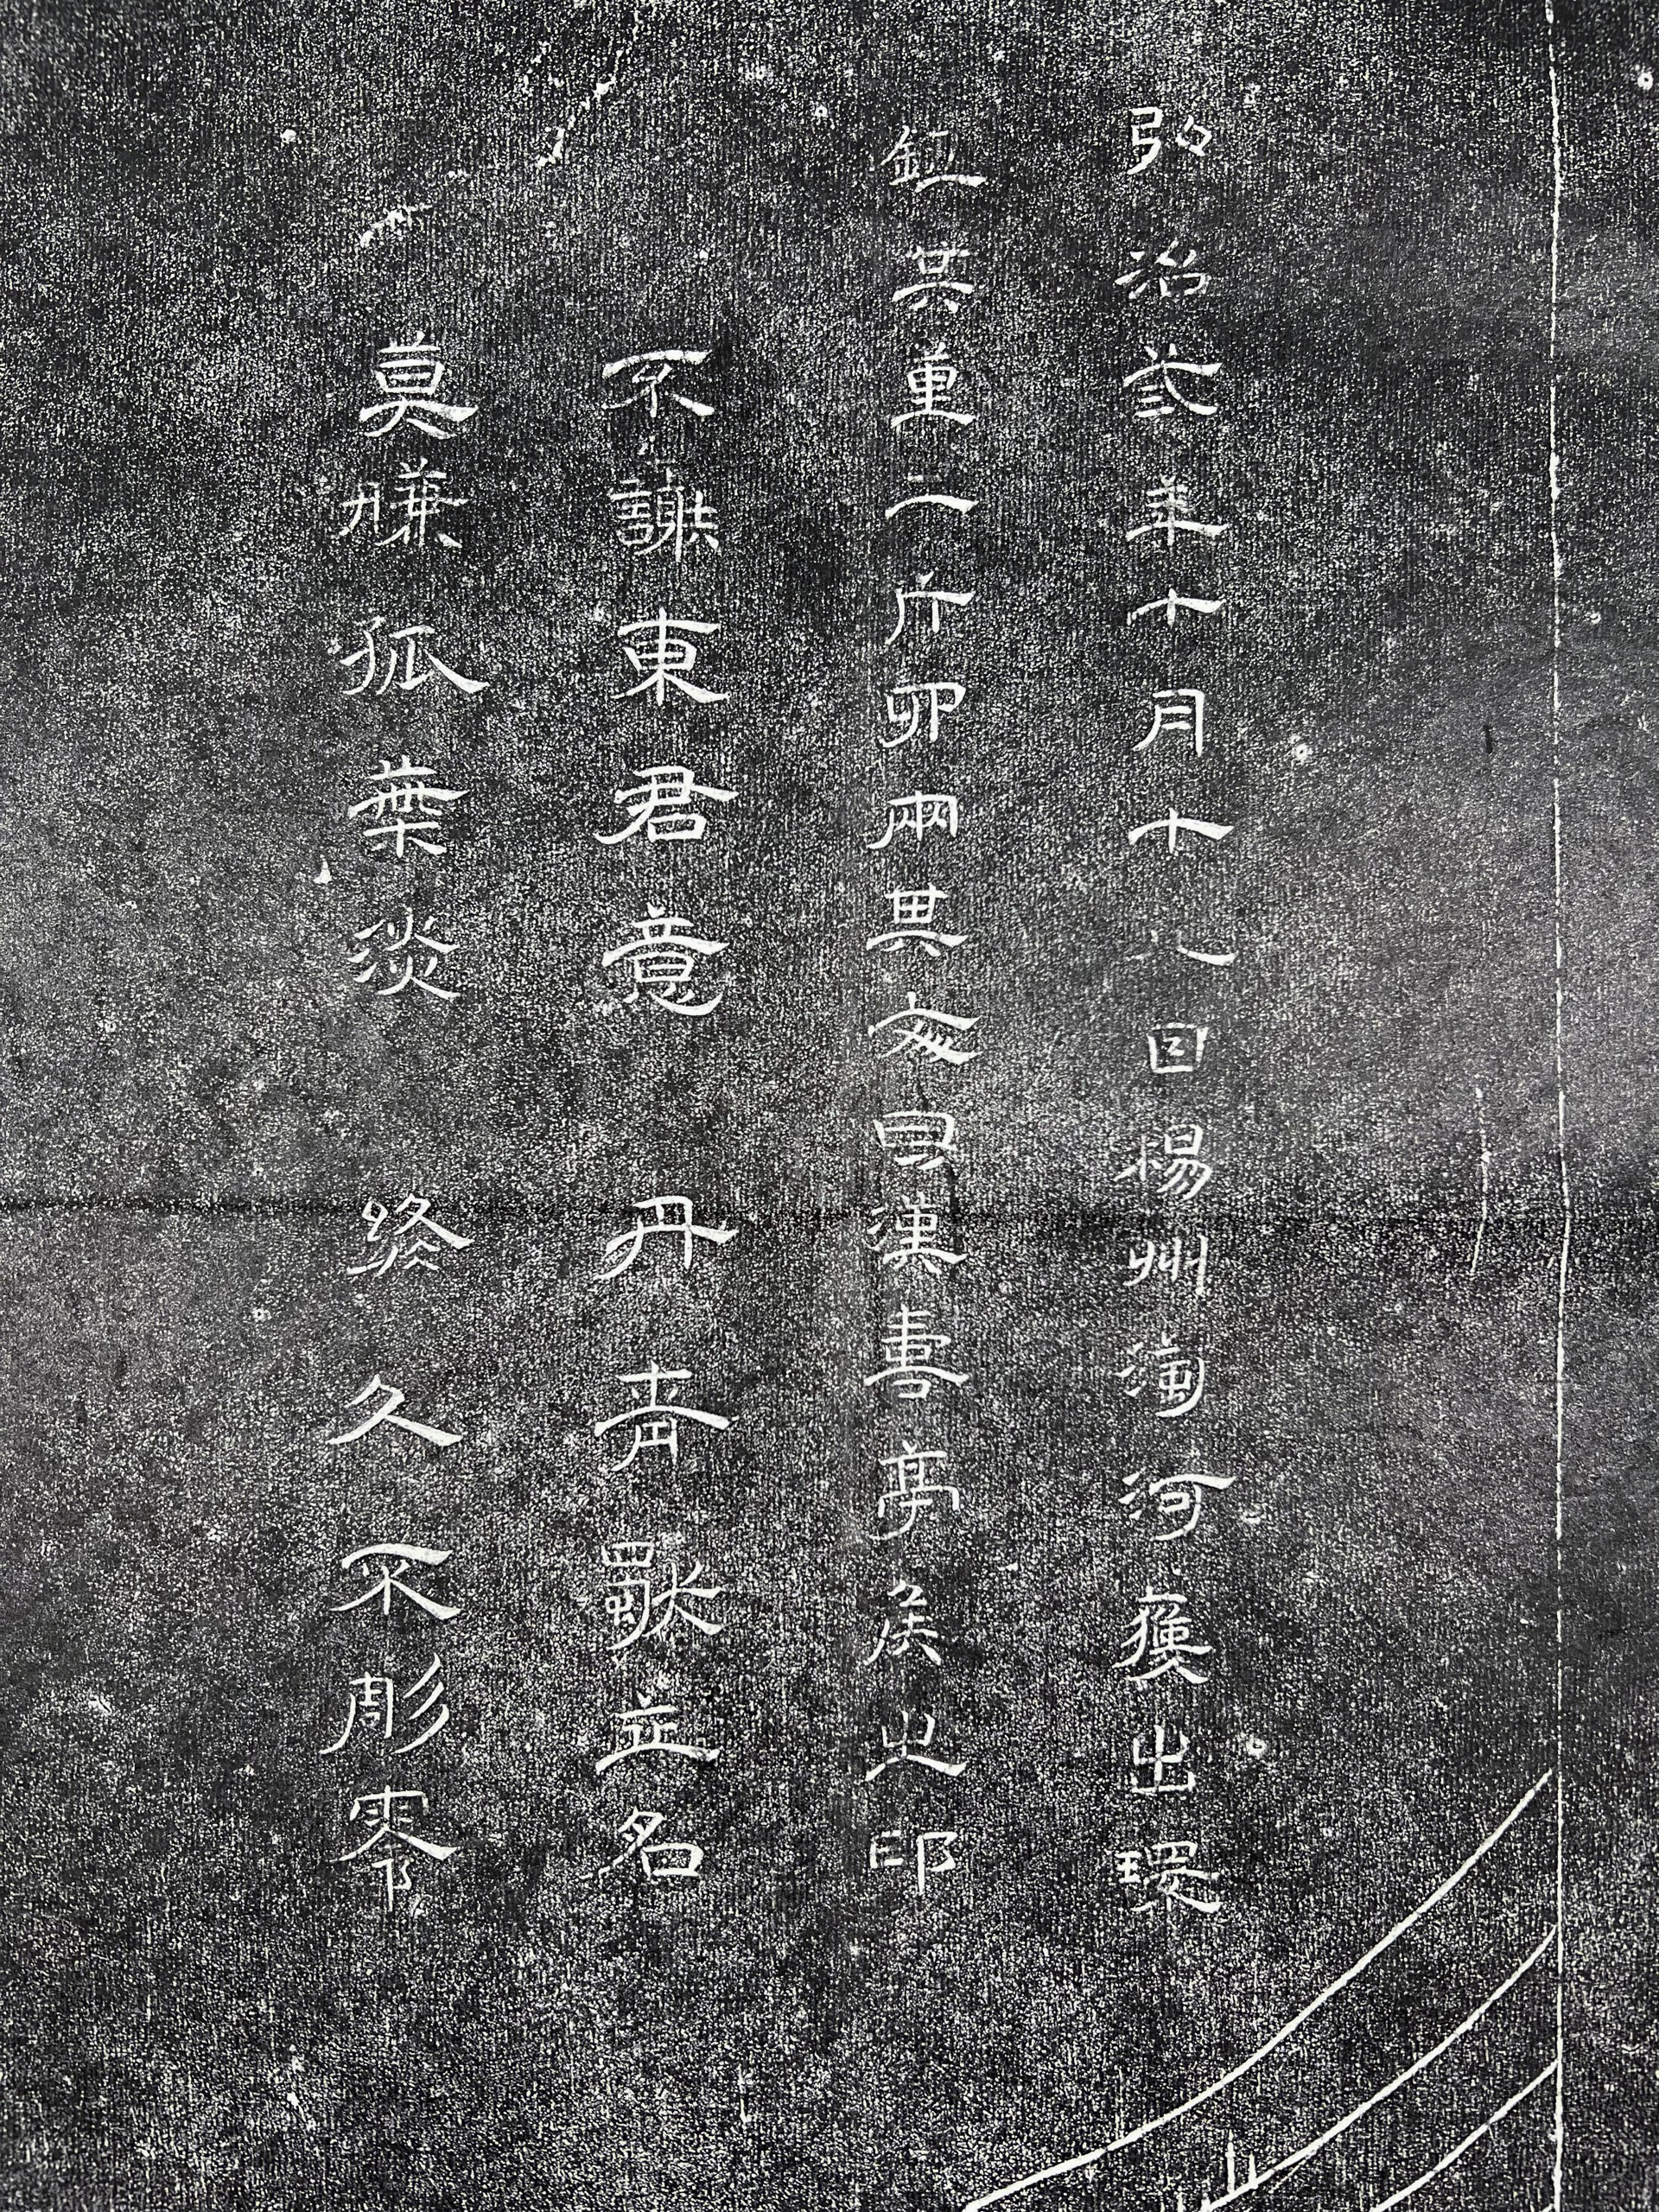 弘治叁年十月十八日楊州淘河獲出環
鈕其重二斤四兩其文曰漢壽亭侯之印
不謝東君意 丹青獨立名
莫嫌孤葉淡 終久不彫零